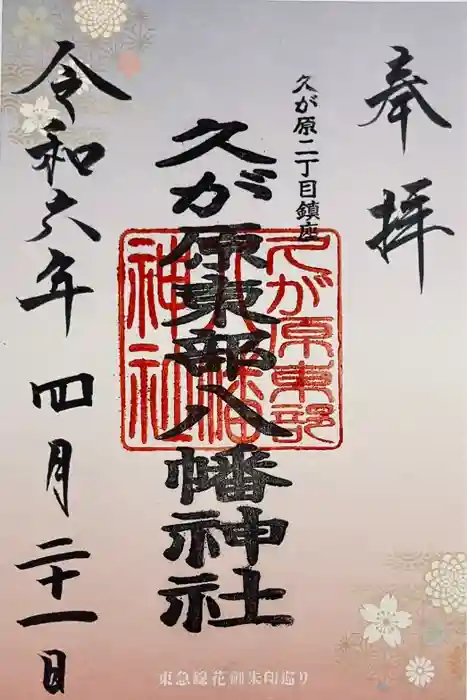 奉拝
久が原二丁目鎮座
久が原東部八幡神社
久が原東部
八幡
神社
令和六年四月二十一日
東急線花御朱印巡り